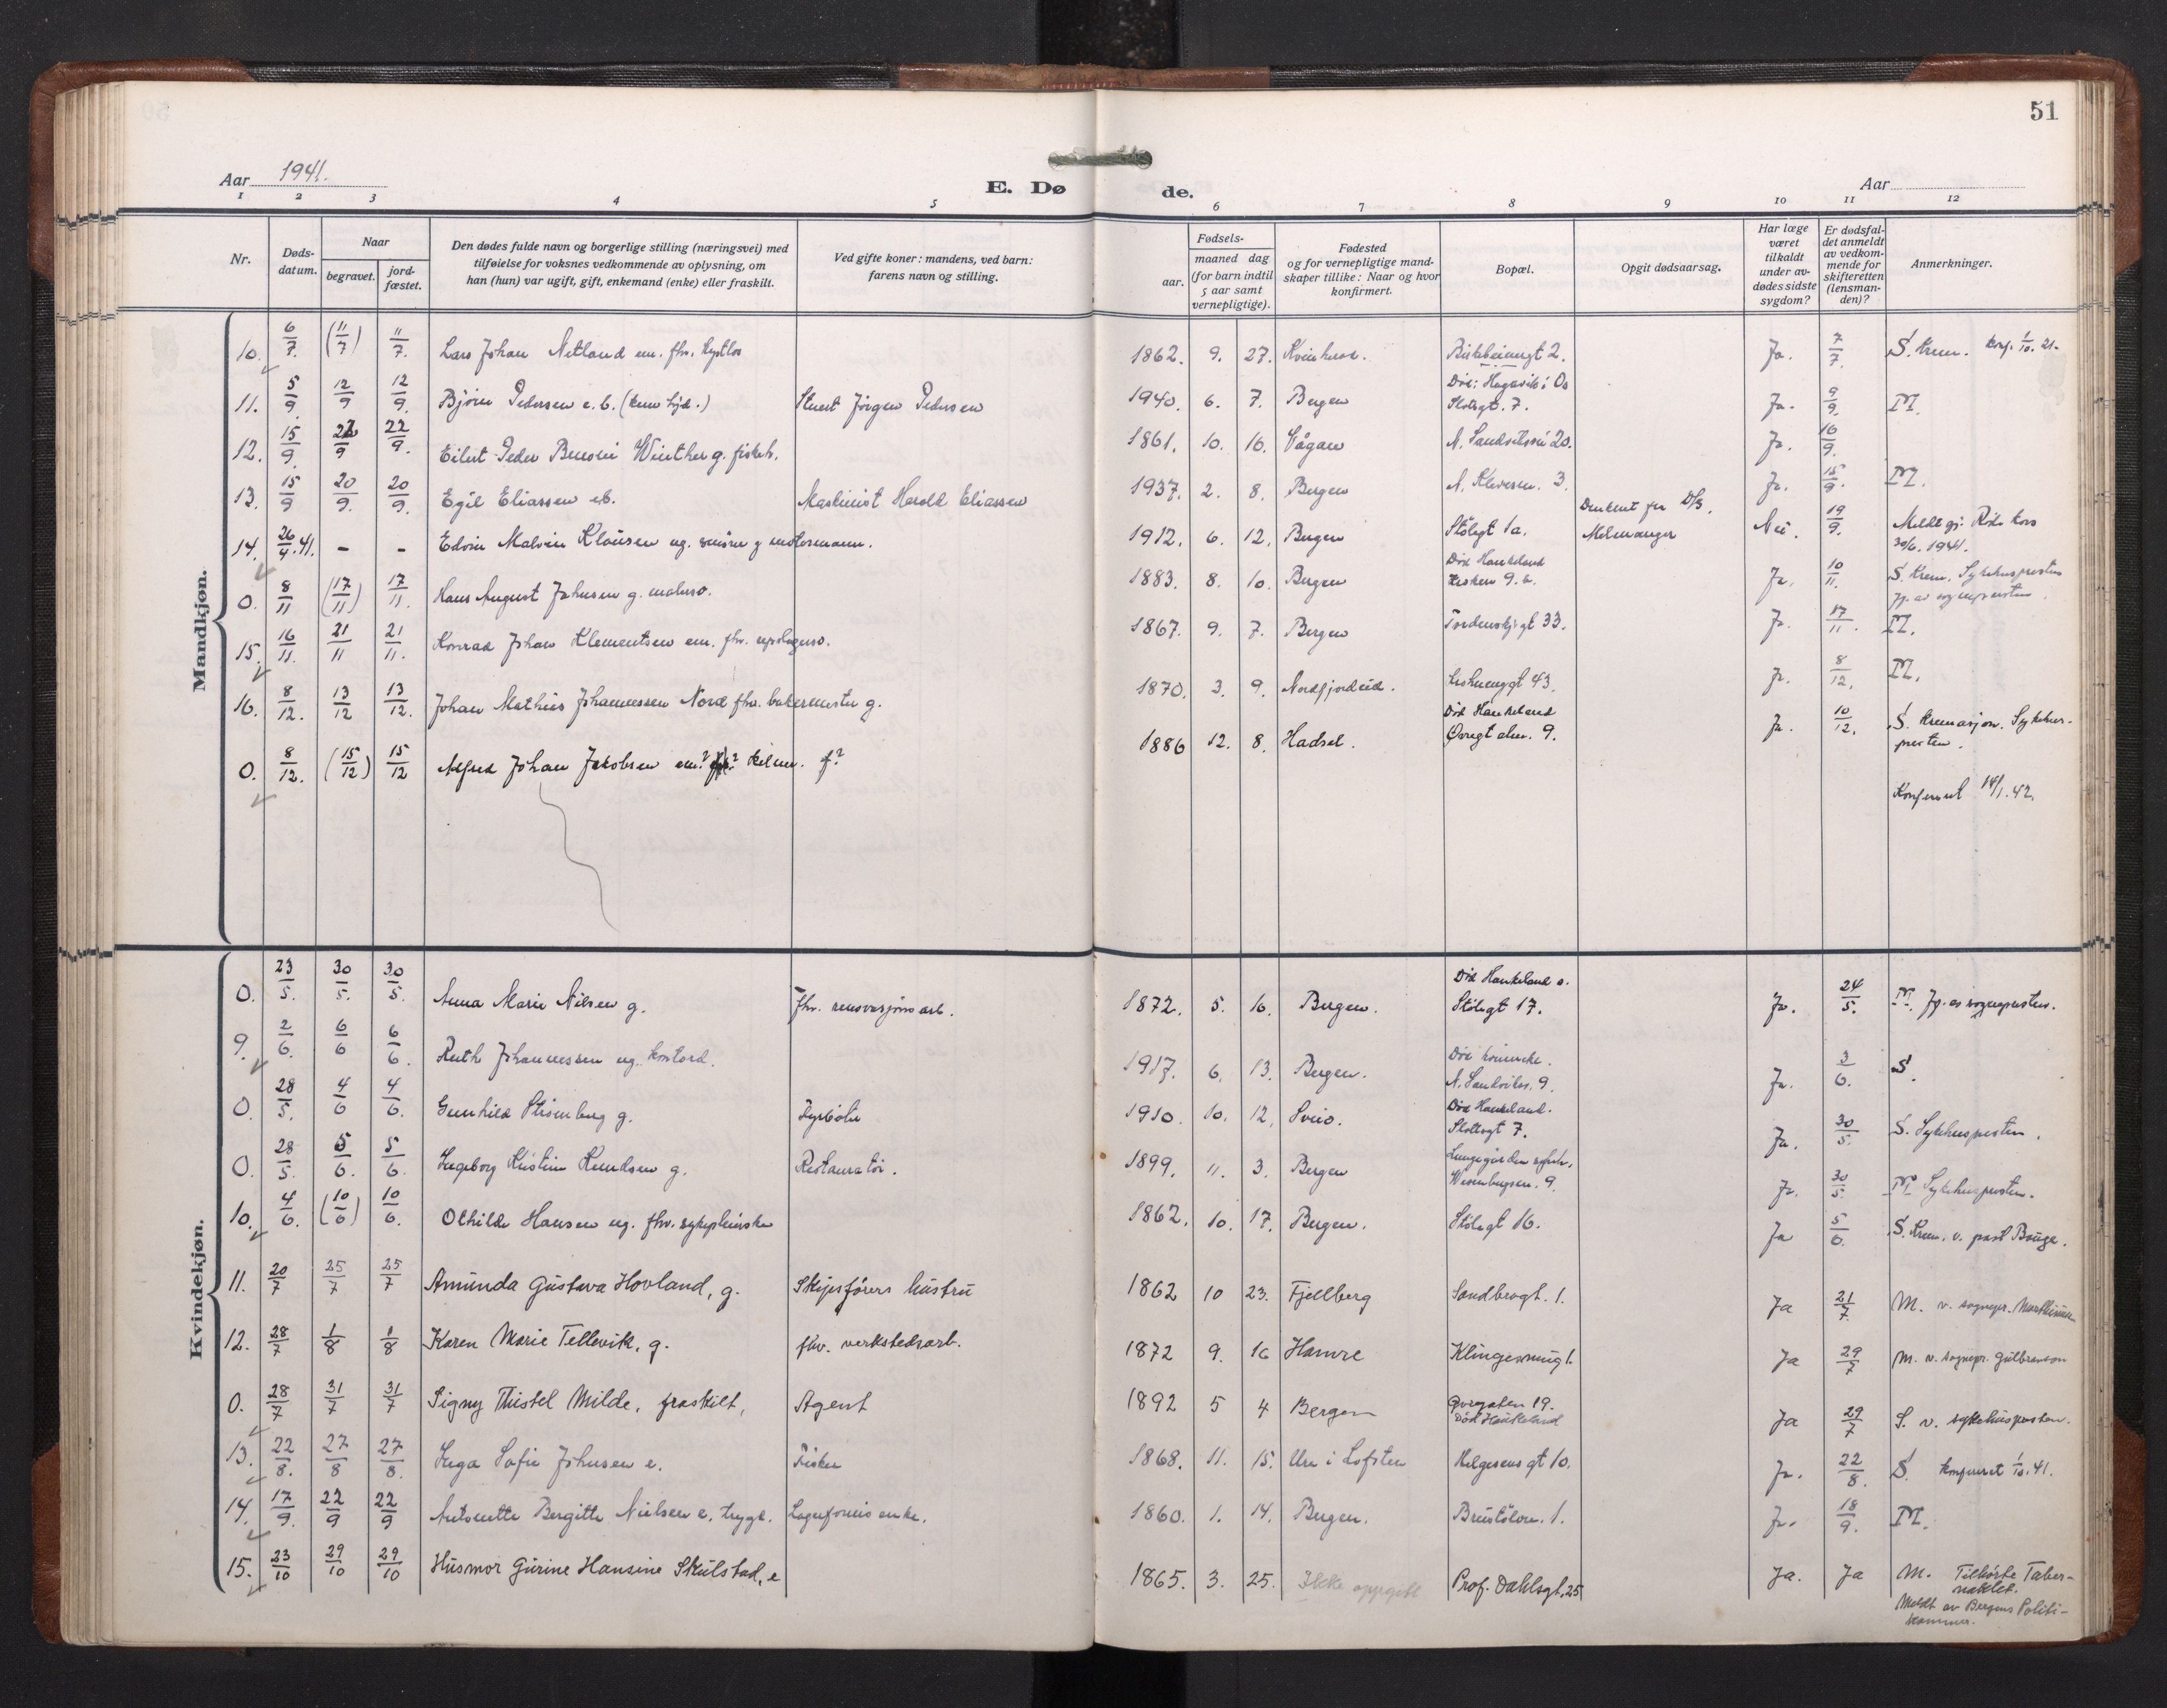 51
Aar 1941.
E. Dø de.
Aar
1 2 3 4 5 6 7 8 9 10 11 12
Nr.
Døds-
datum.
Naar
begravet.
jord-
fæstet.
Den dødes fulde navn og borgerlige stilling (næringsvei) med
tilføielse for voksnes vedkommende av oplysning, om
han (hun) var ugift, gift, enkemand (enke) eller fraskilt.
Ved gifte koner: mandens, ved barn:
farens navn og stilling.
Fødsels-
aar.
maaned dag
(for barn indtil
5 aar samt
vernepligtige).
Fødested
og for vernepligtige mand-
skaper tillike: Naar og hvor
konfirmert.
Bopæl.
Opgit dødsaarsag.
Har læge
været
tilkaldt
under av-
dødes sidste
sygdom?
Er dødsfal-
det anmeldt
av vedkom-
mende for
skifteretten
(lensman-
den)?
Anmerkninger.
Mandkjøn.
10. 6/7. (11/7) 11/7. Lars Johan Netland em. fhv. 1862. 9. 27. Ja. 7/7. S. Krem.
11. 5/9. 12/9 12/9. Bjørn Pedersen e.b. Stuert Jørgen Pedersen 1940. 6. 7. Bergen Død: Hagavik i Os
Slotsgt. 7. Ja. 9/9. M.
12. 15/9. 22/9 22/9. Eilert Peder Winther g. 1861. 10. 16. Vågan N. 20. Ja. 16/9.
13. 15/9 20/9. 20/9. Egil Eliassen e.b. Maskinist Harold Eliassen 1937. 2. 8. Bergen N. 3. Ja. 15/9. M.
14. 26/4.41. - - Edvin Malvin Klausen ug. 1912. 6. 12. Bergen Stølegt 1a. D/S.
Melmanger Nei. 19/9. Meldt gj. Røde Kors
30/6. 1941.
0. 8/11 (17/11) 17/11. Hans August Johnsen g. 1883. 8. 10. Bergen Død Haukeland
9. Ja. 10/11. S. Krem. Sykehuspresten
15. 16/11. 21/11 21/11. Konrad Johan Klementsen em. fhv. 1867. 9. 7. Bergen Tordenskj. gt 33. Ja. 17/11. M.
16. 8/12. 13/12 13/12. Johan Mathias Johannessen Nord fhv. bakermester g. 1870. 3. 9. Nordfjordeid. 43. Ja. 8/12. M.
0. 8/12. (15/12) 15/12 Alfred Johan Jakobsen em? g? 1886 12. 8. Hadsel. Død Haukeland
Øvregt alm. 9. Ja. 10/12. S. Kremasjon. Sykehus-
presten.
Konferert 14/1.42.
Kvindekjøn.
0. 23/5. 30/5. 30/5. Anna Marie Nilsen g. fhv. renovasjonsarb. 1872. 5. 16. Bergen. Død Haukeland s.
Stølegt 17. Ja. 24/5. M.
9. 2/6. 6/6 6/6. Ruth Johannessen ug. kontord. 1917. 6. 13. Bergen. Død
N. Sandviksv. 9. Ja. 3/6. S.
0. 28/5. 4/6 4/6. Gunhild g. Fyrbøter 1910. 10. 12. Sveio. Død Haukeland.
Slottsgt 7. Ja. 30/5. S. Sykehuspresten.
0. 28/5. 5/6. 5/6. Ingeborg Kristine Knudsen g. Restauratør. 1899. 11. 3. Bergen Lungegården sykeh.
9. Ja. 30/5. M Sykehuspresten.
10. 4/6. (10/6) 10/6. Othilde Hansen ug. fhv. sykepleierske 1862. 10. 17. Bergen. Stølegt 16. Ja 5/6. S. Krem. v. past Bauge.
11. 20/7 25/7 25/7 Amunda Gustava Hovland, g. Skipsførers hustru 1862 10 23. Fjellberg Sandbrogt. 1. Ja 21/7. M. v. sognepr.
12. 28/7 1/8 1/8 Karen Marie Tellevik, g. fhv. verkstedsarb. 1872 9. 16 Hamre Klingesmug 1. Ja 29/7 M. v. sognepr. Gulbranson
0. 28/7 31/7 31/7 Signy Thistel Milde, fraskilt, Agent 1892 5 4 Bergen Øvregaten 19.
Død Haukeland Ja 29/7 S. v. sykehuspresten.
13. 22/8. 27/8 27/8. Inga Sofie Johnsen e. Fisker 1868. 11. 15. Ure i Lofoten Helgesens gt 10. Ja. 22/8. S. konferert 1/10.41.
14. 17/9. 22/9 22/9 Antonette Bergitte Nielsen e. trygd. Lagerformis enke. 1860. 1. 14. Bergen. 1. Ja. 18/9. M.
15. 23/10 29/10 29/10 Husmor Gurine Hansine Skulstad, e 1865. 3. 25. Ikke oppgitt Prof. Dahlsgt. 25 Ja. Ja M. Tilhørte Taber-
naklet.
Meldt av Bergens Politi-
kammer.